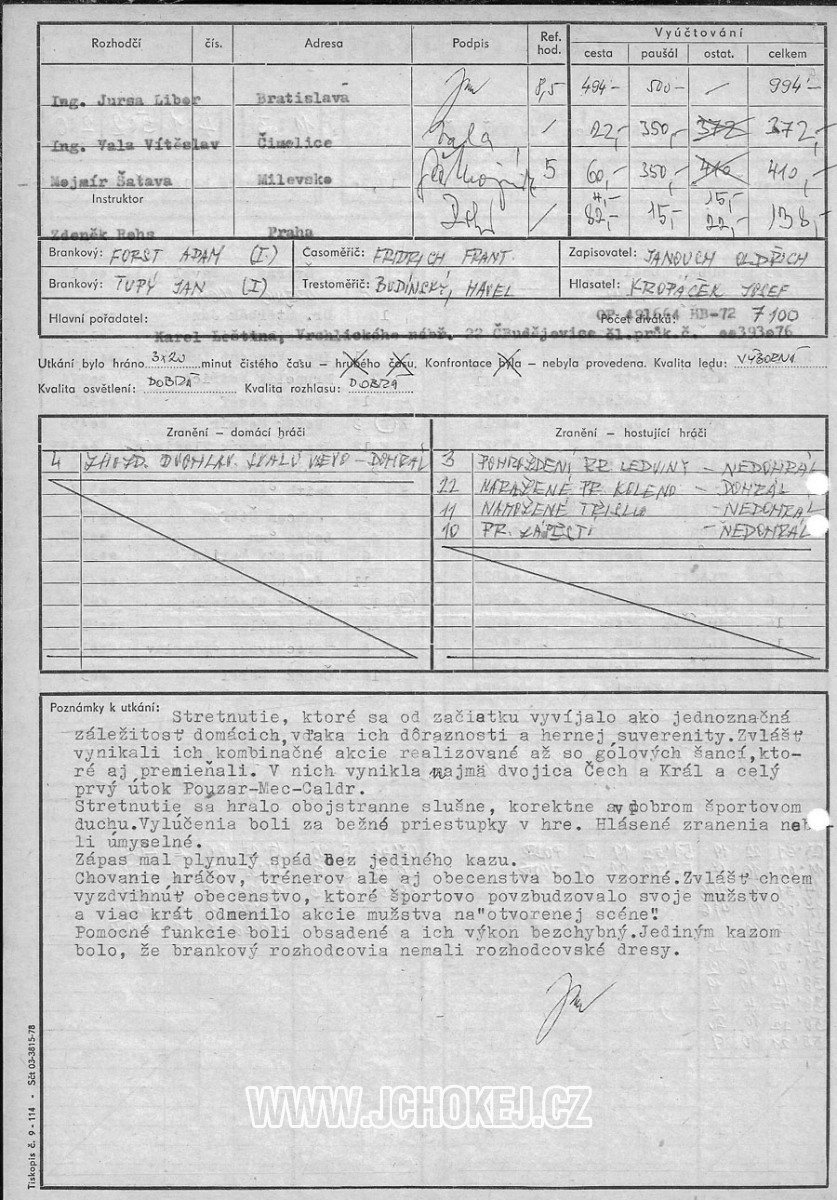 Rozhodčí čís. Adresa Podpis Ref. hod. Vyúčtování
cesta paušál ostat. celkem
Ing. Jursa Libor Bratislava 8,5 494,- 500,- / 994,-
Ing. Vala Vítěslav Čimelice Vala / 22,- 350,- 372 372,-
Mojmír Šatava Milevsko 5 60,- 350,- 410 410,-
Instruktor
Zdeněk Rehs Praha / 82,- 15,- 22,- 138,-
Brankový: FORST ADAM (I.) Časoměřič: FRIDRICH FRANT. Zapisovatel: JANOUCH OLDŘICH
Brankový: TUPÝ JAN (I) Trestoměřič: BUDÍNSKÝ, HAVEL Hlasatel: KROPÁČEK JOSEF
Hlavní pořadatel: HB-72 Počet diváků: 7100
Karel Leština, Vrchlického nábř. 22 ČBudějovice čl.průk.č.
Utkání bylo hráno 3x20 minut čistého času – hrubého času. Konfrontace byla – nebyla provedena. Kvalita ledu: VÝBORNÁ
Kvalita osvětlení: DOBRÁ Kvalita rozhlasu: DOBRÁ
Zranění – domácí hráči Zranění – hostující hráči
4 ZHOŽD. DVOJHLAV. SVALU VLEVO – DOHRÁL 3 POHMOŽDENÍ PR. LEDVINY – NEDOHRÁL
22 NARAŽENÉ PR. KOLENO – DOHRÁL
11 NAMOŽENÉ TŘÍSLO – NEDOHRÁL
10 PR. ZÁPĚSTÍ – NEDOHRÁL
Poznámky k utkání: Stretnutie, ktoré sa od začiatku vyvíjalo ako jednoznačná
záležitosť domácich,vďaka ich dôraznosti a hernej suverenity.Zvlášť
vynikali ich kombinačné akcie realizované až so gólových šancí,kto-
ré aj premieňali. V nich vynikla najmä dvojica Čech a Král a celý
prvý útok Pouzar-Mec-Caldr.
Stretnutie sa hralo obojstranne slušne, korektne a v dobrom športovom
duchu.Vylúčenia boli za bežné priestupky v hre. Hlásené zranenia nebo-
li úmyselné.
Zápas mal plynulý spád bez jediného kazu.
Chovanie hráčov, trénerov ale aj obecenstva bolo vzorné.Zvlášť chcem
vyzdvihnúť obecenstvo, ktoré športovo povzbudzovalo svoje mužstvo
a viac krát odmenilo akcie mužstva na"otvorenej scéne".
Pomocné funkcie boli obsadené a ich výkon bezchybný.Jediným kazom
bolo, že brankový rozhodcovia nemali rozhodcovské dresy.
Tiskopis č. 9 - 114 • Sčt 03-3815-78
WWW.JCHOKEJ.CZ